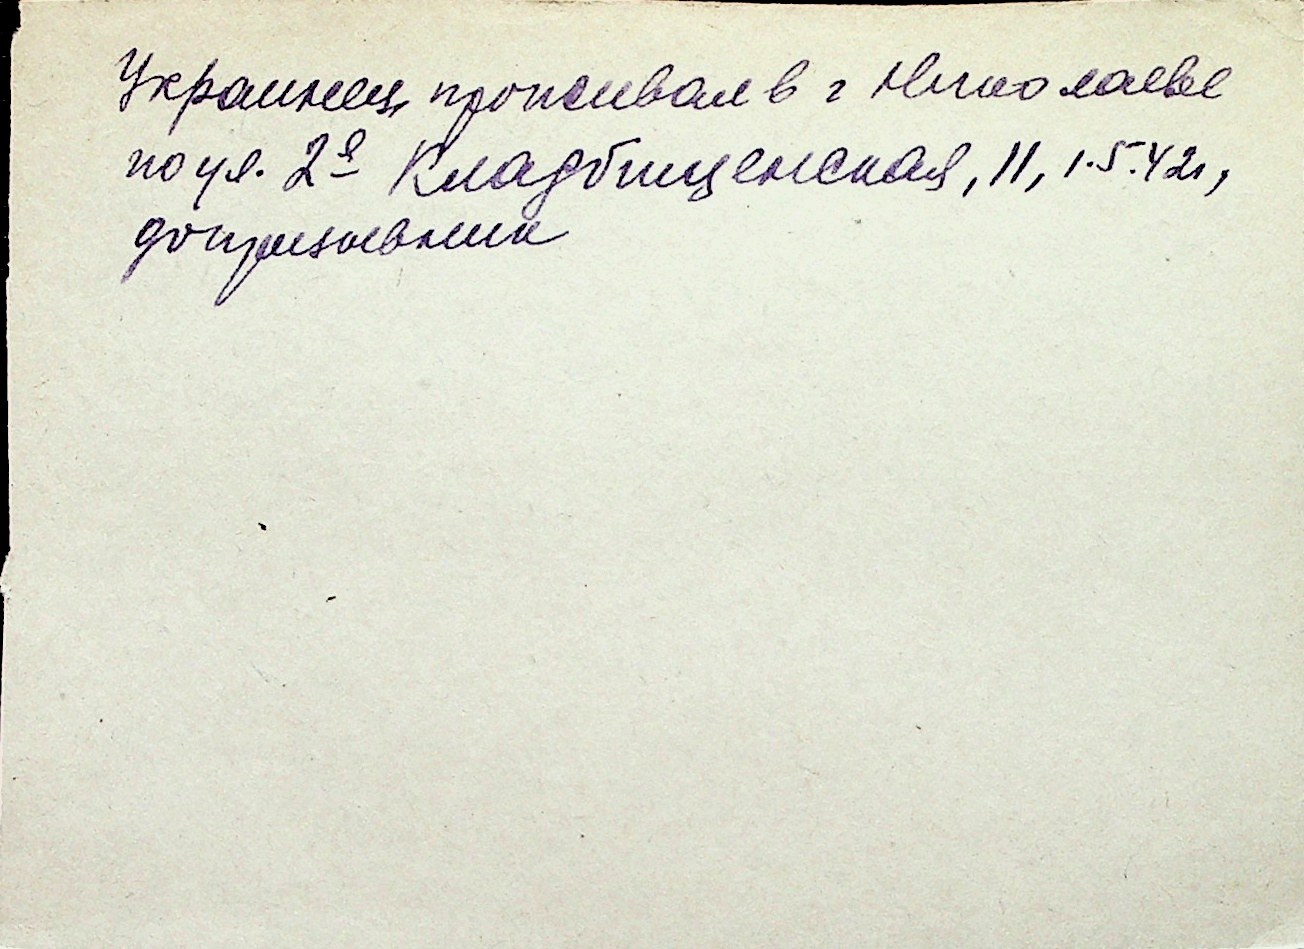 Украинец, проживал в г Николаеве
по ул. 2я Кладбищенская, 11, 1.5.42г,
допризывник